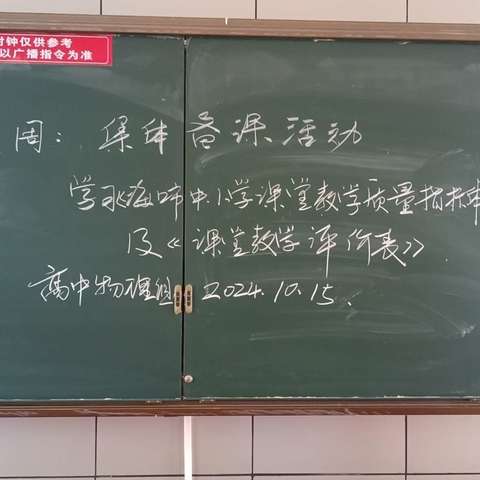 时钟仅供参考
以广播指令为准
周：集体备课活动
学北海市中小学课堂教学质量指标
及《课堂教学评价表》.
高中物理组 2024.10.15.